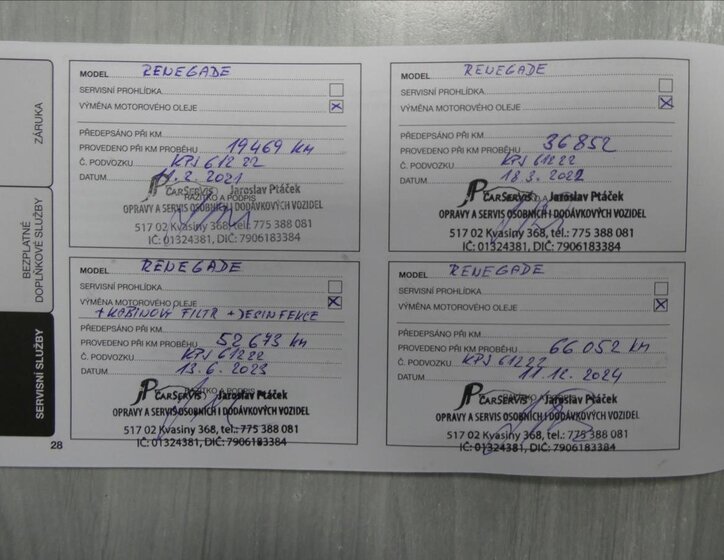 ZÁRUKA
BEZPLATNÉ
DOPLŇKOVÉ SLUŽBY
SERVISNÍ SLUŽBY
28
MODEL RENEGADE
SERVISNÍ PROHLÍDKA
VÝMĚNA MOTOROVÉHO OLEJE X
PŘEDEPSÁNO PŘI KM
PROVEDENO PŘI KM PROBĚHU 19469 KM
Č. PODVOZKU KPJ 61222
DATUM 11.2 2021
RAZÍTKO A PODPIS
JP CARSERVIS Jaroslav Ptáček
OPRAVY A SERVIS OSOBNÍCH I DODÁVKOVÝCH VOZIDEL
517 02 Kvasiny 368, tel.: 775 388 081
IČ: 01324381, DIČ: 7906183384
MODEL RENEGADE
SERVISNÍ PROHLÍDKA
VÝMĚNA MOTOROVÉHO OLEJE X
PŘEDEPSÁNO PŘI KM
PROVEDENO PŘI KM PROBĚHU 36852
Č. PODVOZKU KPJ 61222
DATUM 18.3 2022
JP CARSERVIS Jaroslav Ptáček
OPRAVY A SERVIS OSOBNÍCH I DODÁVKOVÝCH VOZIDEL
517 02 Kvasiny 368, tel.: 775 388 081
IČ: 01324381, DIČ: 7906183384
MODEL RENEGADE
SERVISNÍ PROHLÍDKA
VÝMĚNA MOTOROVÉHO OLEJE X
+ KABINOVÝ FILTR + DESINFEKCE
PŘEDEPSÁNO PŘI KM
PROVEDENO PŘI KM PROBĚHU 52673 KM
Č. PODVOZKU KPJ 61222
DATUM 13.6 2023
RAZÍTKO A PODPIS
JP CARSERVIS Jaroslav Ptáček
OPRAVY A SERVIS OSOBNÍCH I DODÁVKOVÝCH VOZIDEL
517 02 Kvasiny 368, tel.: 775 388 081
IČ: 01324381, DIČ: 7906183384
MODEL RENEGADE
SERVISNÍ PROHLÍDKA
VÝMĚNA MOTOROVÉHO OLEJE X
PŘEDEPSÁNO PŘI KM
PROVEDENO PŘI KM PROBĚHU 66052 KM
Č. PODVOZKU KPJ 61222
DATUM 11.12. 2024
JP CARSERVIS Jaroslav Ptáček
OPRAVY A SERVIS OSOBNÍCH I DODÁVKOVÝCH VOZIDEL
517 02 Kvasiny 368, tel.: 775 388 081
IČ: 01324381, DIČ: 7906183384